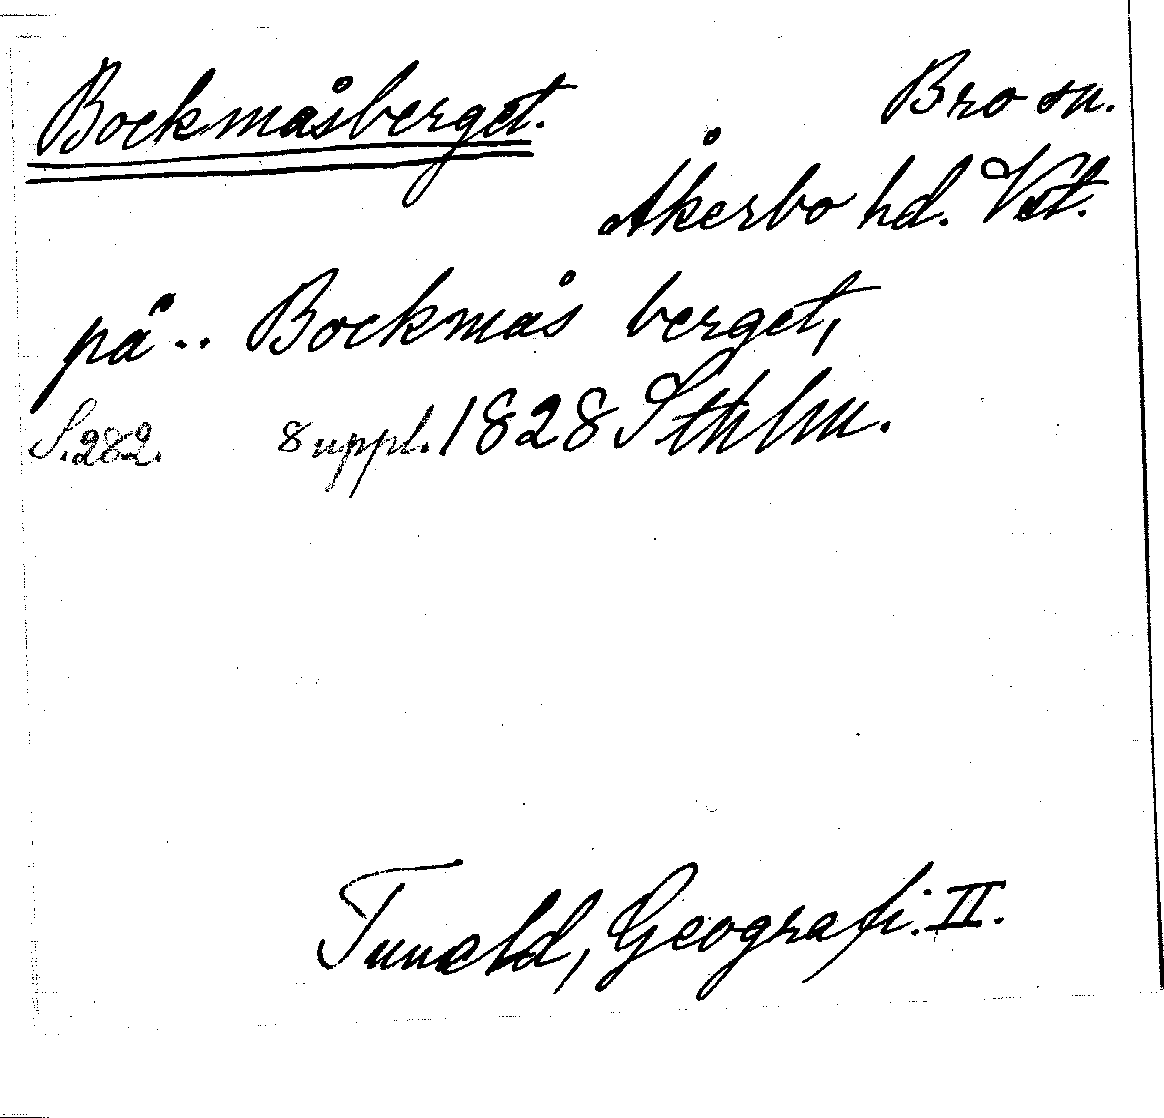 Bockmåsberget.
Bro sn.
Åkerbo hd. Vstm.
på .. Bockmås berget,
S. 282. Suppl. 1828 Sthlm.
Tuneld, Geografi. II.